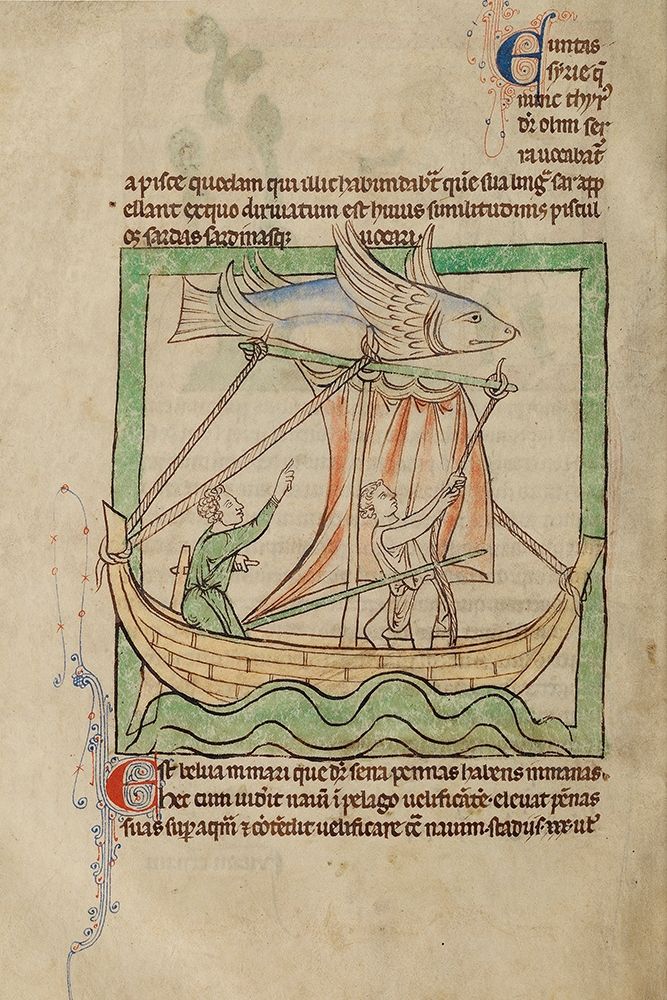 Ciuitas
syrie q̄
nunc thyr᷒
dr̄ olim ser
ra uocabat᷑
a pisce quodam qui illic habundab̄t quē sua ling̃ sar app
ellant ex quo diriuatum est huius similitudinis piscul
os sardas sardinasq; uocari.
Est belua in mari que dr̄ serra pennas habens inmanas.
hec cum uid̛it nauē ī pelago uelificāte. eleuat pēnas
suas sup aquā ⁊ cōtēdit uelificare cū nauim. stadiis .xxx. ut̛